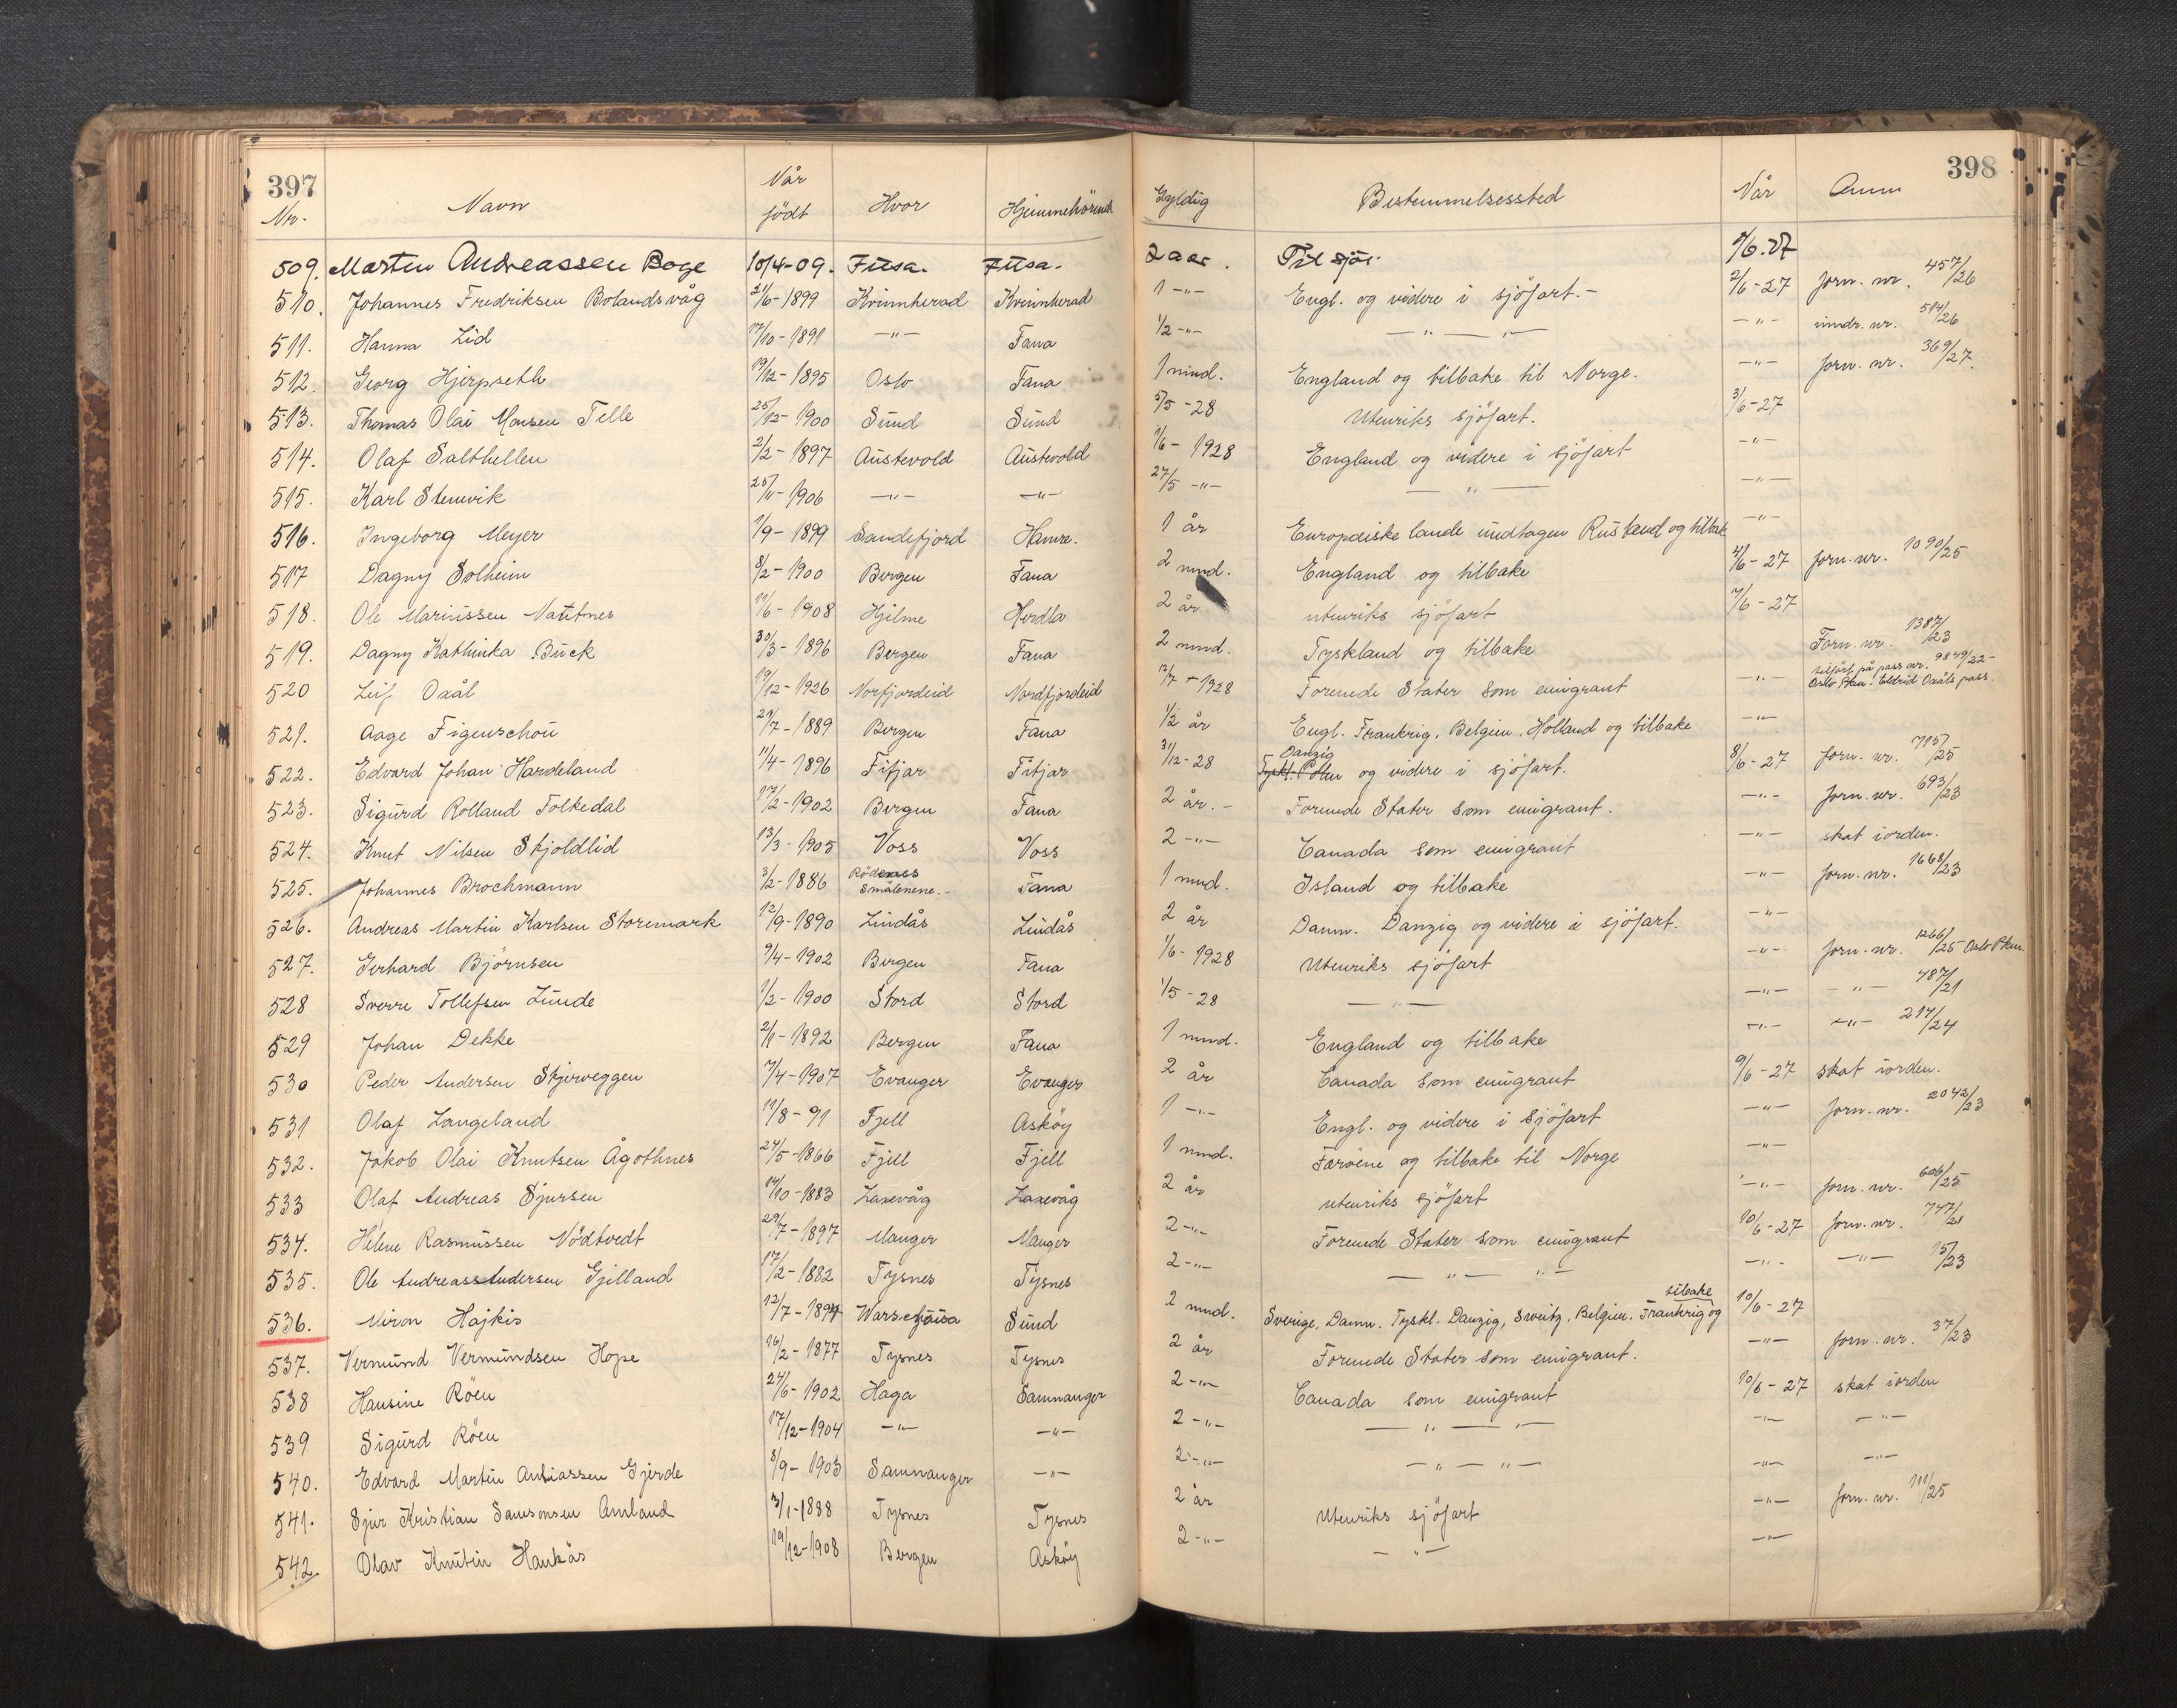 397 398
Nr. Navn Når født Hvor Hjemmehörende Gyldig Bestemmelsessted Når Anm
509. Martin Andreassen Boge 10/4-09. Fusa. Fusa. 2 aar. Til sjøs. 1/6.27
510. Johannes Fredriksen Bolandsvåg 21/6-1899 Kvinnherad Kvinnherad 1 -"- Engl. og videre i sjöfart.- 2/6-27 forn. nr. 457/26
511. Hanna Lid 17/10-1891 -"- Fana 1/2 -"- -"- -"- -"- inndr. nr. 514/26
512. Georg Hjerpseth 19/12-1895 Oslo Fana 1 mnd. England og tilbake til Norge. -"- forn. nr. 369/27.
513. Thomas Olai Monsen Telle 25/12-1900 Sund Sund 5/5-28 Utenriks sjöfart. 3/6-27
514. Olaf Salthellen 2/2-1897 Austevold Austevold 1/6-1928 England og videre i sjöfart -"-
515. Karl Stenevik 25/11-1906 -"- -"- 27/5 -"- -"- -"-
516. Ingeborg Meyer 1/9-1899 Sandefjord Hamre. 1 år Europæiske lande undtagen Rusland og tilbake -"-
517 Dagny Solheim 8/2-1900 Bergen Fana 2 mnd. England og tilbake 4/6-27 forn. nr. 1090/25
518. Ole Mariussen Nautnes 11/6-1908 Hjelme Herdla 2 år utenriks sjöfart 7/6-27
519. Dagny Kathinka Buck 30/3-1896 Bergen Fana 2 mnd. Tyskland og tilbake Forn. nr. 1387/23
520 Leif Oaål 19/12-1926 Norfjordeid Nordfjordeid 13/7-1928 Forenede Stater som emigrant -"- tilført på pass nr. 9849/22- Oslo Pkm. Eldrid Oaåls pass.
521. Aage Figenschou 29/7-1889 Bergen Fana 1/2 år Engl. Frankrig, Belgien, Holland og tilbake -"-
522. Edvard Johan Hardeland 11/4-1896 Fitjar Fitjar 31/12-28 Tyskl. Polen Danzig og videre i sjöfart. 8/6-27 forn. nr. 715/25
523. Sigurd Rolland Folkedal 17/2-1902 Bergen Fana 2 år.- Forenede Stater som emigrant. -"- forn. nr. 693/23
524. Knut Nilsen Skjoldlid 13/3-1905 Voss Voss 2 -"- Canada som emigrant -"- skat iorden.
525. Johannes Brochmann 3/2-1886 Rödenes Smålenene.- Fana 1 mnd. Island og tilbake -"- forn. nr. 1668/23
526. Andreas Martin Karlsen Storemark 12/9-1890 Lindås Lindås 2 år Danm. Danzig og videre i sjöfart. -"-
527. Gerhard Björnsen 9/4-1902 Bergen Fana 1/6-1928 Utenriks sjöfart -"- forn. nr. 1266/25 Oslo Pkm.
528 Sverre Tollefsen Lunde 1/2-1900 Stord Stord 1/5-28 -"- -"- -"- 487/21
529 Johan Dekke 2/1-1892 Bergen Fana 1 mnd. England og tilbake -"- -"- 214/24
530 Peder Andersen Skjerveggen 7/4-1907 Evanger Evanger 2 år Canada som emigrant 9/6-27 skat iorden.
531 Olaf Langeland 11/8-91 Fjell Asköy 1 -"- Engl. og videre i sjöfart -"- forn. nr. 2042/23
532. Jakob Olai Knutsen Ågothnes 24/5-1866 Fjell Fjell 1 mnd. Færöene og tilbake til Norge -"-
533 Olaf Andreas Sjursen 14/10-1883 Laxevåg Laxevåg 2 år utenriks sjöfart -"- forn. nr. 606/25
534. Helene Rasmussen Nödtvedt 29/7-1897 Manger Manger 2 -"- Forenede Stater som emigrant 10/6-27 forn. nr. 747/21
535. Ole Andreas Andersen Gjilland 17/2-1882 Tysnes Tysnes 2 -"- -"- -"- -"- -"- 15/23
536. Miron Hajkis 12/7-1894 Warschaua Sund 2 mnd. Sverige, Danm. Tyskl. Danzig, Sveitz, Belgien, Frankrig og tilbake 10/6-27
537. Vermund Vermundsen Hope 16/2-1877 Tysnes Tysnes 2 år Forenede Stater som emigrant. -"- forn. nr. 37/23
538 Hansine Röen 24/6-1902 Haga Samnanger 2 -"- Canada som emigrant 10/6-27 skat iorden
539 Sigurd Röen 17/12-1904 -"- -"- 2 -"- -"- -"- -"- -"-
540. Edvard Martin Antiassen Gjerde 8/9-1903 Samnanger -"- 2 -"- -"- -"- -"- -"-
541. Sjur Kristian Samsonsen Amland 3/1-1888 Tysnes Tysnes 2 år Utenriks sjöfart -"- forn. nr. 111/25
542. Olav Knutin Haukås 19/12-1908 Bergen Asköy 2 -"- -"- -"-